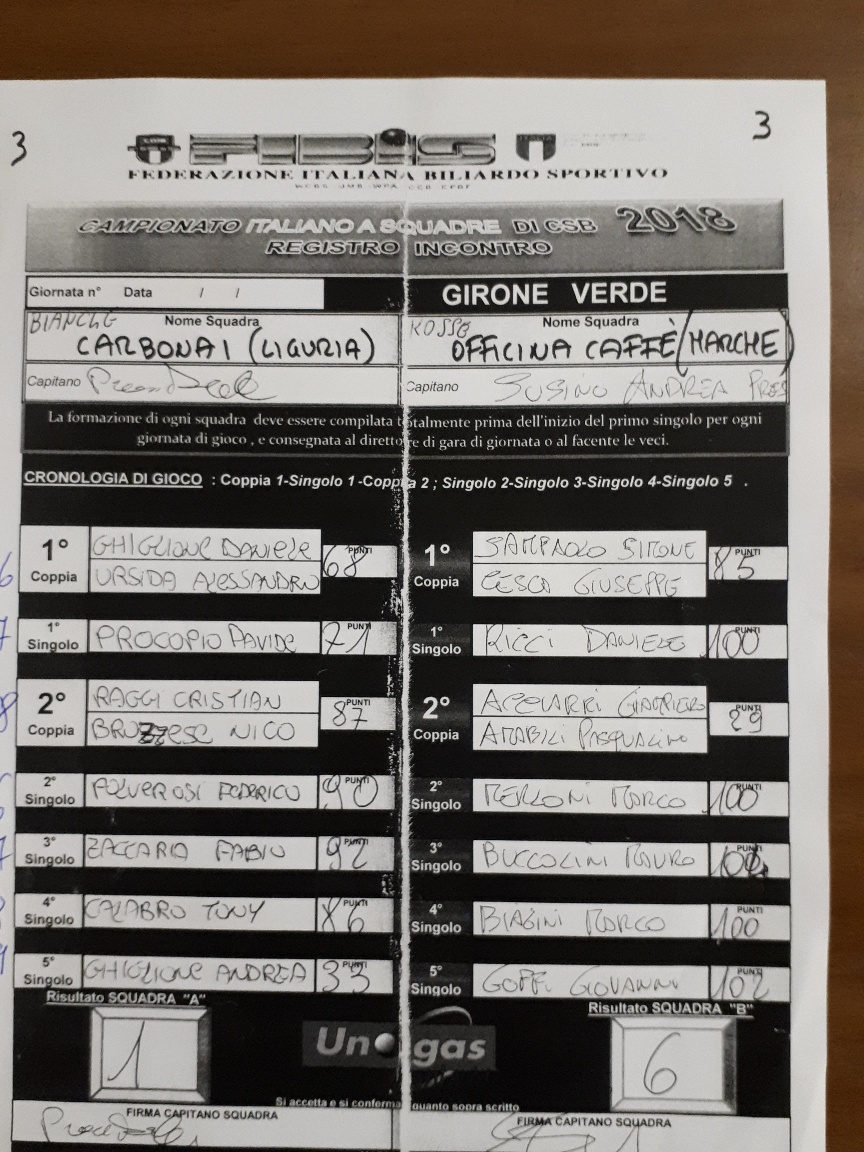 3
3
FIBiS
FEDERAZIONE ITALIANA BILIARDO SPORTIVO
CAMPIONATO ITALIANO A SQUADRE DI CSB 2018
REGISTRO INCONTRO
Giornata n° Data / /
GIRONE VERDE
BIANCHE Nome Squadra
CARBONAI (LIGURIA)
ROSSE Nome Squadra
OFFICINA CAFFÈ (MARCHE)
Capitano
Capitano SUSINO ANDREA PRES
La formazione di ogni squadra deve essere compilata totalmente prima dell'inizio del primo singolo per ogni
giornata di gioco , e consegnata al direttore di gara di giornata o al facente le veci.
CRONOLOGIA DI GIOCO : Coppia 1-Singolo 1 -Coppia 2 ; Singolo 2-Singolo 3-Singolo 4-Singolo 5 .
1° Coppia
GHIGLIONE DANIELE
URSIDA ALESSANDRO
PUNTI 68
1° Coppia
SAMPAOLO SIMONE
CESCA GIUSEPPE
PUNTI 85
1° Singolo PROCOPIO DAVIDE PUNTI 71
1° Singolo RICCI DANIELE PUNTI 100
2° Coppia
RAGGI CRISTIAN
BRUZZESE NICO
PUNTI 87
2° Coppia
GIAMPIERO
AMABILI PASQUALINO
PUNTI 29
2° Singolo POLVEROSI FEDERICO PUNTI 90
2° Singolo MERLONI MARCO PUNTI 100
3° Singolo ZACCARIA FABIO PUNTI 92
3° Singolo BUCCOLINI MAURO PUNTI
4° Singolo CALABRO TONY PUNTI 86
4° Singolo BIAGINI MARCO PUNTI 100
5° Singolo GHIGLIONE ANDREA PUNTI 33
5° Singolo GOFFI GIOVANNI PUNTI 102
Risultato SQUADRA "A"
1
Unogas
Risultato SQUADRA "B"
6
Si accetta e si conferma quanto sopra scritto
FIRMA CAPITANO SQUADRA
FIRMA CAPITANO SQUADRA